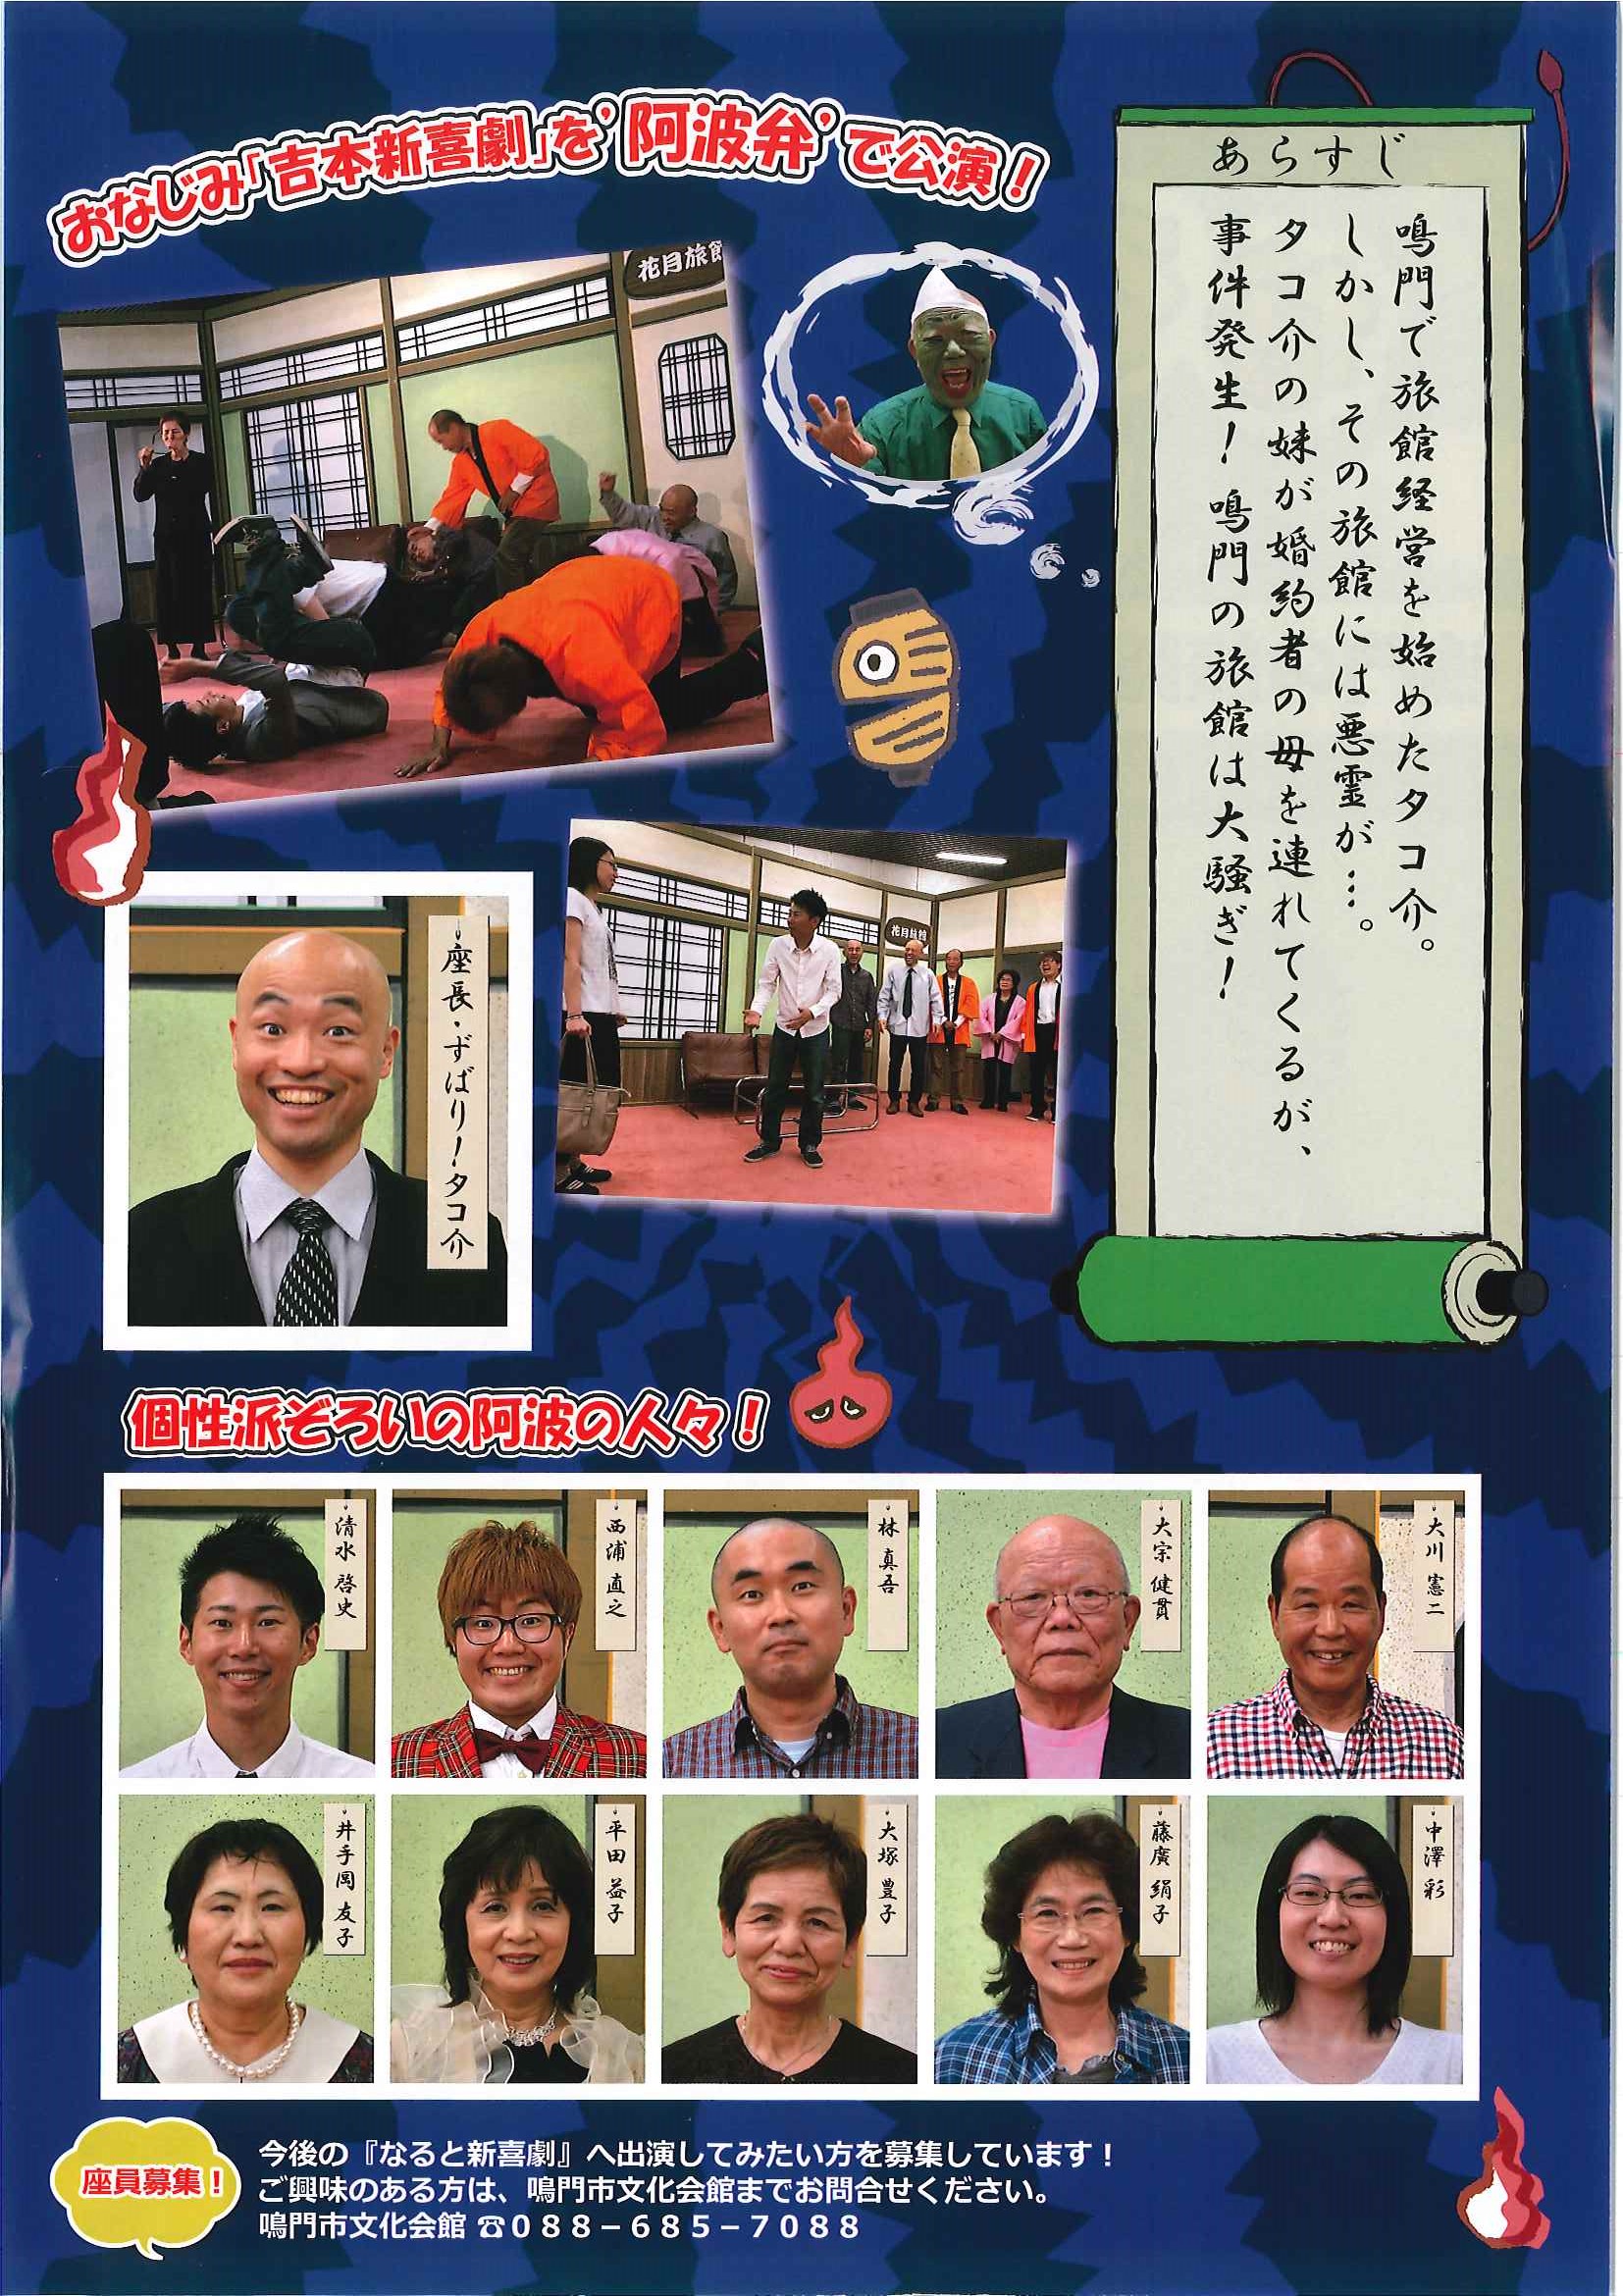 おなじみ「吉本新喜劇」を’阿波弁’で公演！
花月旅館
あらすじ
鳴門で旅館経営を始めたタコ介。
しかし、その旅館には悪霊が…。
タコ介の妹が婚約者の母を連れてくるが、
事件発生！鳴門の旅館は大騒ぎ！
花月旅館
座長・ずばり！タコ介
個性派ぞろいの阿波の人々！
清水 啓史
西浦 直之
林 真吾
大宗 健貫
大川 憲二
井手岡 友子
平田 益子
大塚 豊子
藤廣 絹子
中澤 彩
座員募集！
今後の『なると新喜劇』へ出演してみたい方を募集しています！
ご興味のある方は、鳴門市文化会館までお問合せください。
鳴門市文化会館 ☎０８８－６８５－７０８８